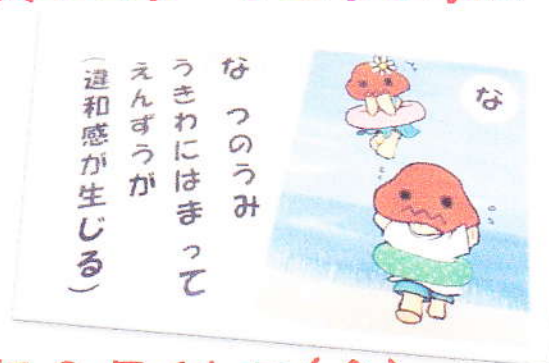 な つのうみ
うきわにはまって
えんずうが
(違和感が生じる)
な